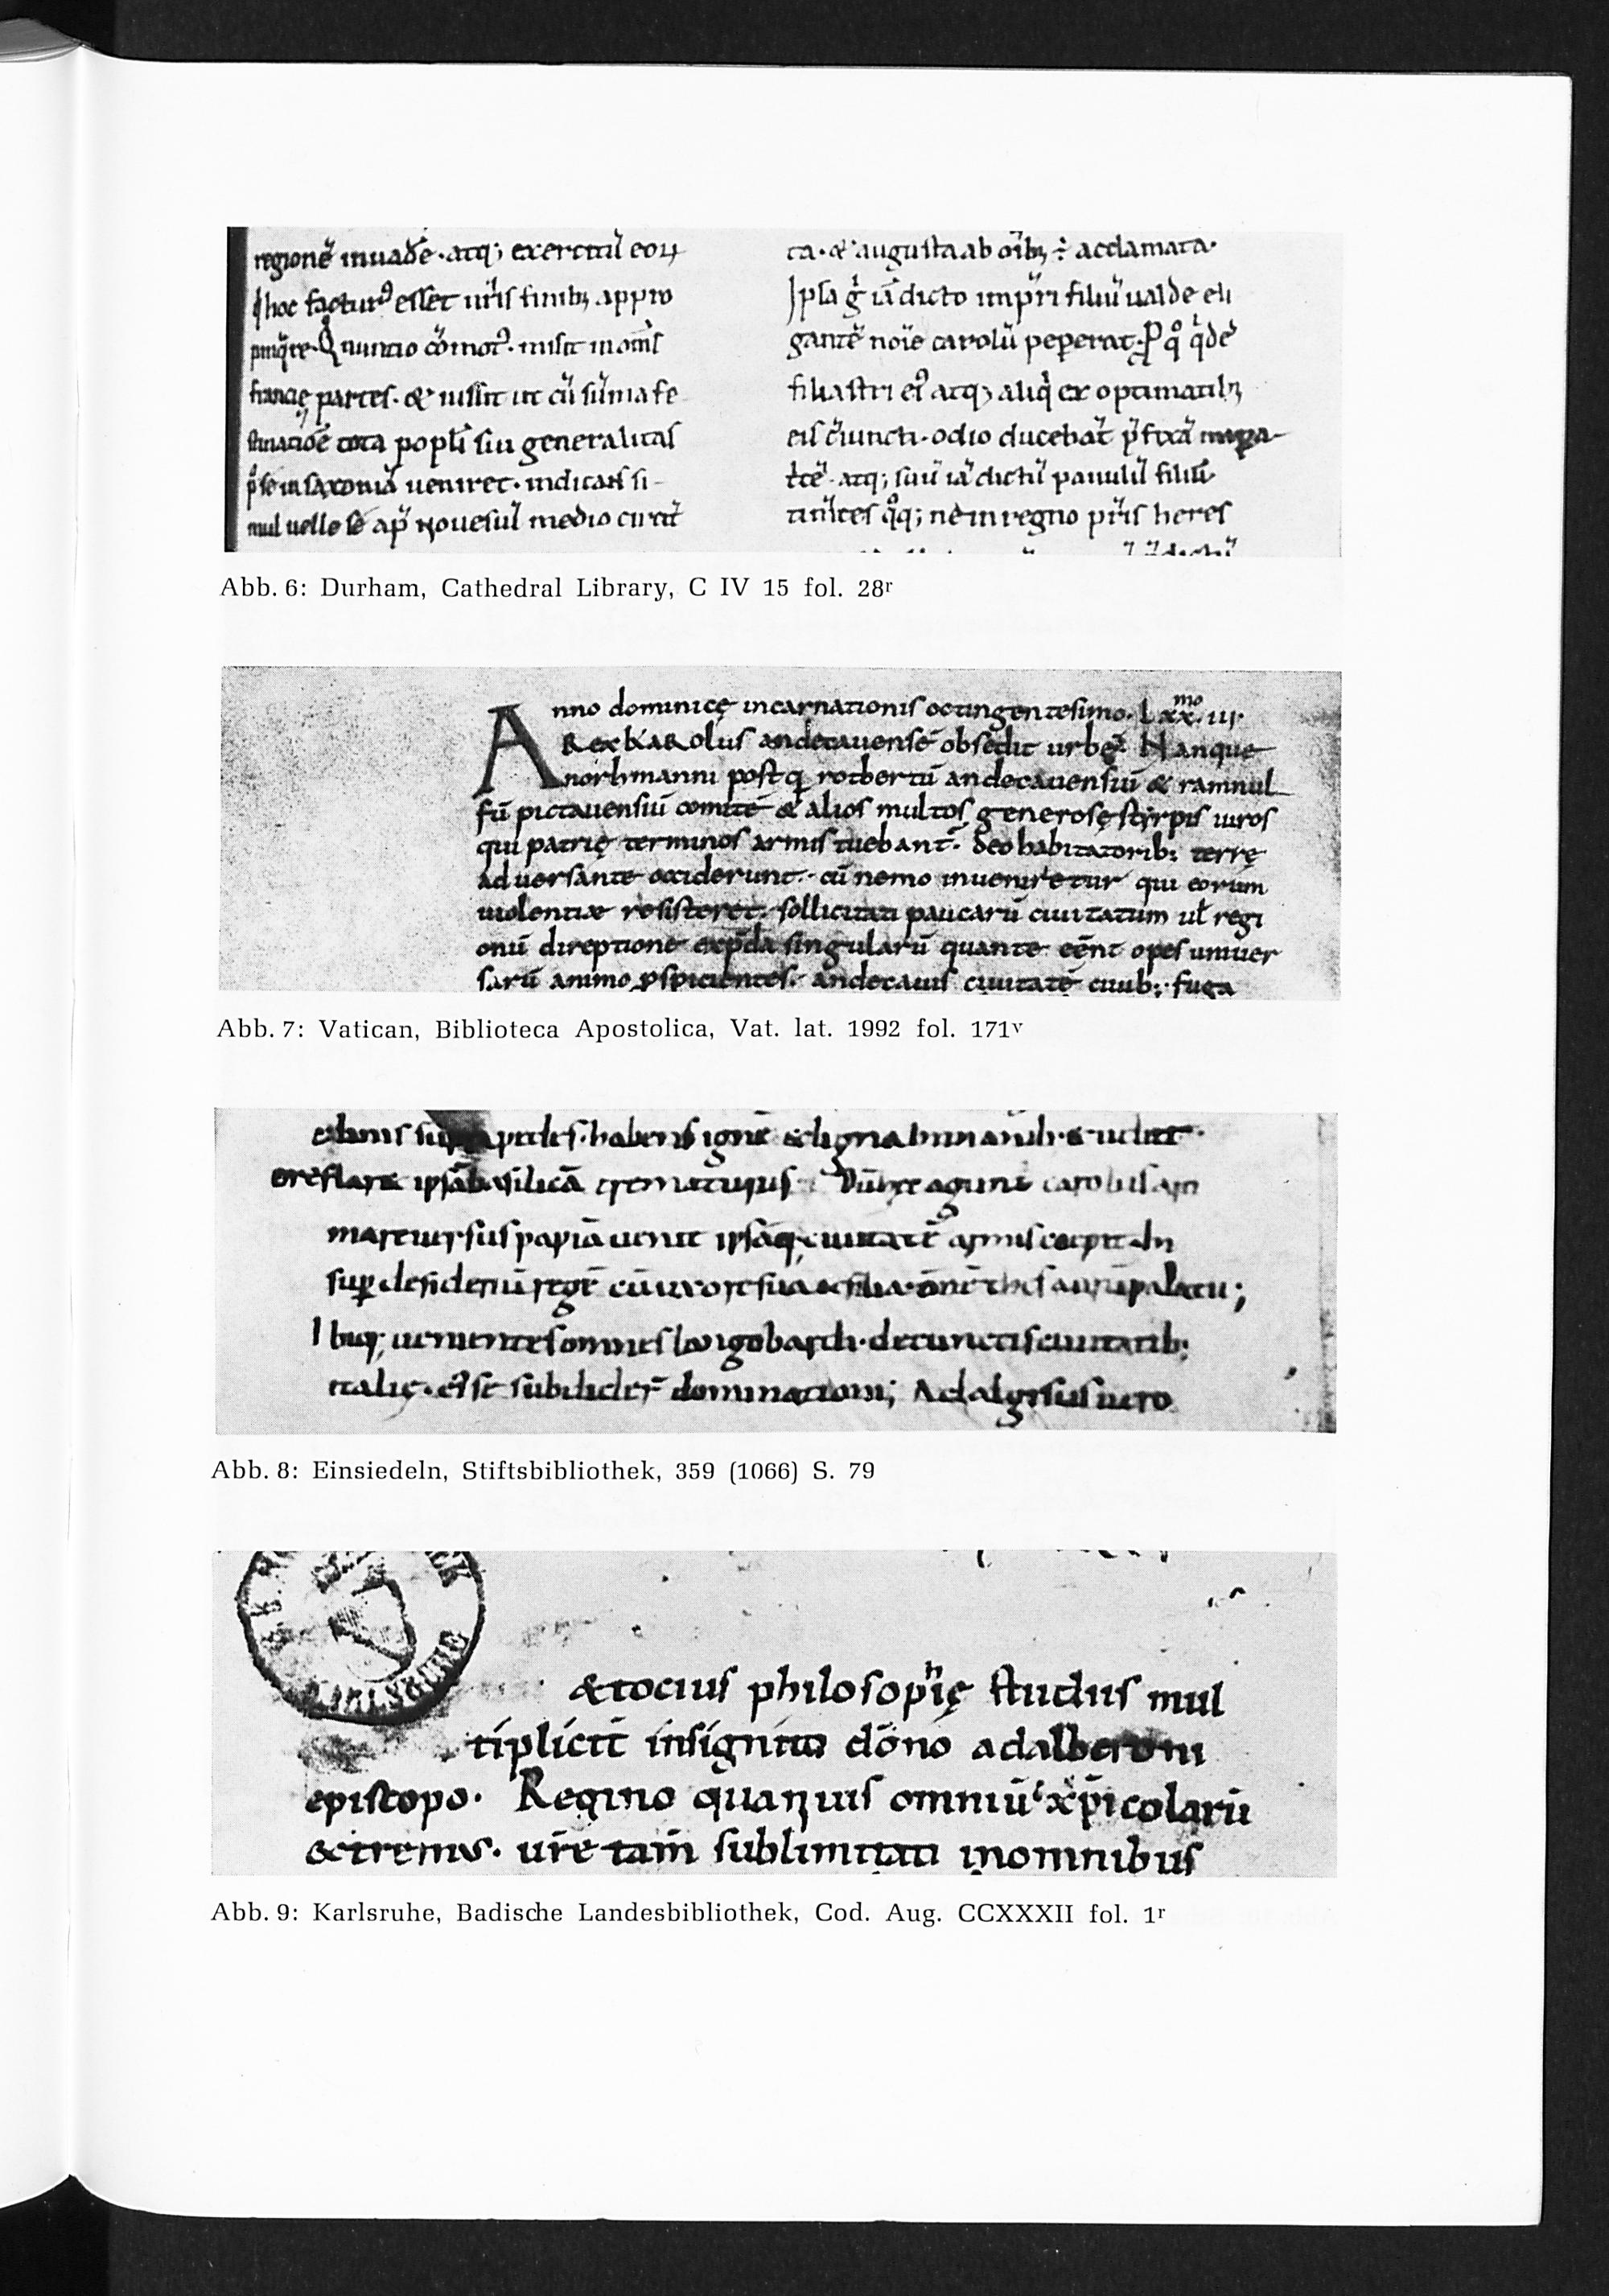 regionē inuadē · atq; exercitū eoꝝ
hoc facturꝰ esset ur̄is finibꝫ appro
nuncio cōmotꝰ · misit
francię partes · & iussit ut cū sūma fe
tota popl̄i sui generalitas
saxoniā ueniret · indicans si-
mul uelle se ap̄ nouesiū medio
ta · & augusta ab oīb; ÷ acclamata ·
Ipsa g̊ iā dicto imp̄ri filiū ualde eli
gantē noīe carolū peꝑerat · qͦ qͥdē
filiastri eiꝰ atq; aliqͥ ex optimatibꝫ
eis c̄iuncti · odio ducebāt
atq; suū iā dictū paruulū filiū
qͦq; ne in regno pr̄is heres
Abb. 6: Durham, Cathedral Library, C IV 15 fol. 28r
Anno dominicę incarnationis octingentesimo · Lxx.mo iii·
Rex kaRolus andecauensē obsedit urbē · Nanque
northmanni postq̄ rotbertū andecauensiū & ramnul
fū pictauensiū comitē & alios multos generosę styrpis uiros
qui patrię terminos armis tuebant̄ · deo habitatorib; terrę
aduersante occiderunt · cū nemo inueniretur qui eorum
uiolentiæ resisteret · solliciti paucarū ciuitatum ul̄ regi
onū direptione exp̄da singularū quante eēnt opes uniuer
sarū animo ꝑspicientes · andecauis ciuitatē cuub; · fuga
Abb. 7: Vatican, Biblioteca Apostolica, Vat. lat. 1992 fol. 171v
pedes · habens ignē & ligna
ipsā basilicā crematurus · Dūhec agunt carolus
mare uersus papiā uenit ipsāq; ciuitatē armis coepit ·
suꝑ desideriū regē cū uxore sua & filia · ōnē palatii;
Ibiq; uenientes omnes langobardi · decunctis ciuitatib;
italię · se subdider̄ dominationi; Adalgisus uero
Abb. 8: Einsiedeln, Stiftsbibliothek, 359 (1066) S. 79
& tocius philosophię studiis mul
tiplicit̄ insignito dōno adalberoni
episcopo · Regino quanuis omniū xp̄icolarū
extremus · ur̄e tam̄ sublimitati inomnibus
Abb. 9: Karlsruhe, Badische Landesbibliothek, Cod. Aug. CCXXXII fol. 1r